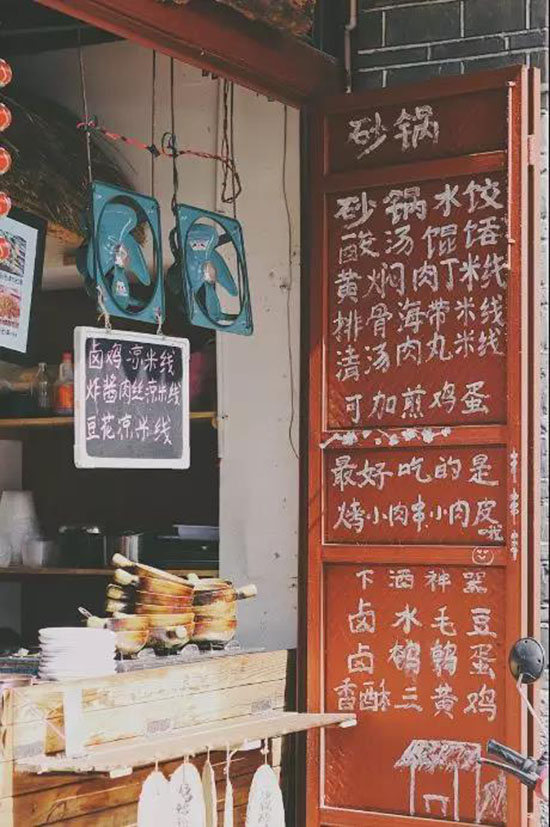 卤鸡凉米线
炸酱肉丝凉米线
豆花凉米线
砂锅
砂锅水饺
酸汤馄饨
黄焖肉丁米线
排骨海带米线
清汤肉丸米线
可加煎鸡蛋
最好吃的是
烤小肉串小肉皮
哦
下酒神器
卤水毛豆
卤鹌鹑蛋
香酥三黄鸡